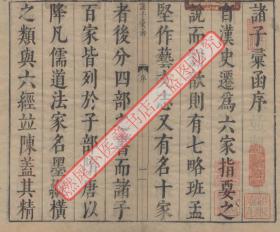 諸子彙函序
自漢史遷爲六家指要之
說而歆則有七略班孟
堅作藝又有名十家
者後分四部書而諸子
序 一
百家皆列於子部唐以
降凡儒道法家名墨縱橫
之類與六經竝陳蓋其精